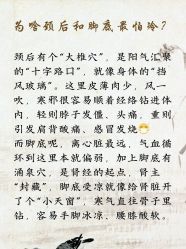 为啥颈后和脚底最怕冷？
颈后有个“大椎穴”，是阳气汇聚
的“十字路口”，就像身体的“挡
风玻璃”。这里皮薄肉少，风一
吹，寒邪很容易顺着经络钻进体
内，轻则脖子发僵、头痛，重则
引发肩背酸痛、感冒发烧😷
而脚底呢，离心脏最远，气血循
环到这里本就偏弱，加上脚底有
涌泉穴，是肾经的起点，肾主
“封藏”，脚底受凉就像给肾脏开
了个“小天窗”，寒气直往骨子里
钻，容易手脚冰凉、腰膝酸软。